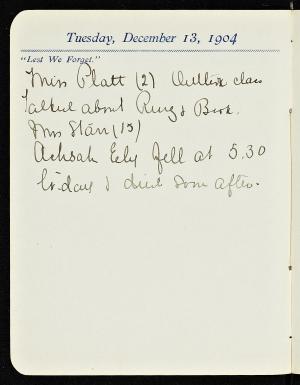 Tuesday, December 13, 1904
"Lest We Forget."
Miss Platt (2) Outline class
Talked about Ring & Book.
Mrs Starr (15)
Achsah Ely fell at 5.30
to-day & died soon after.